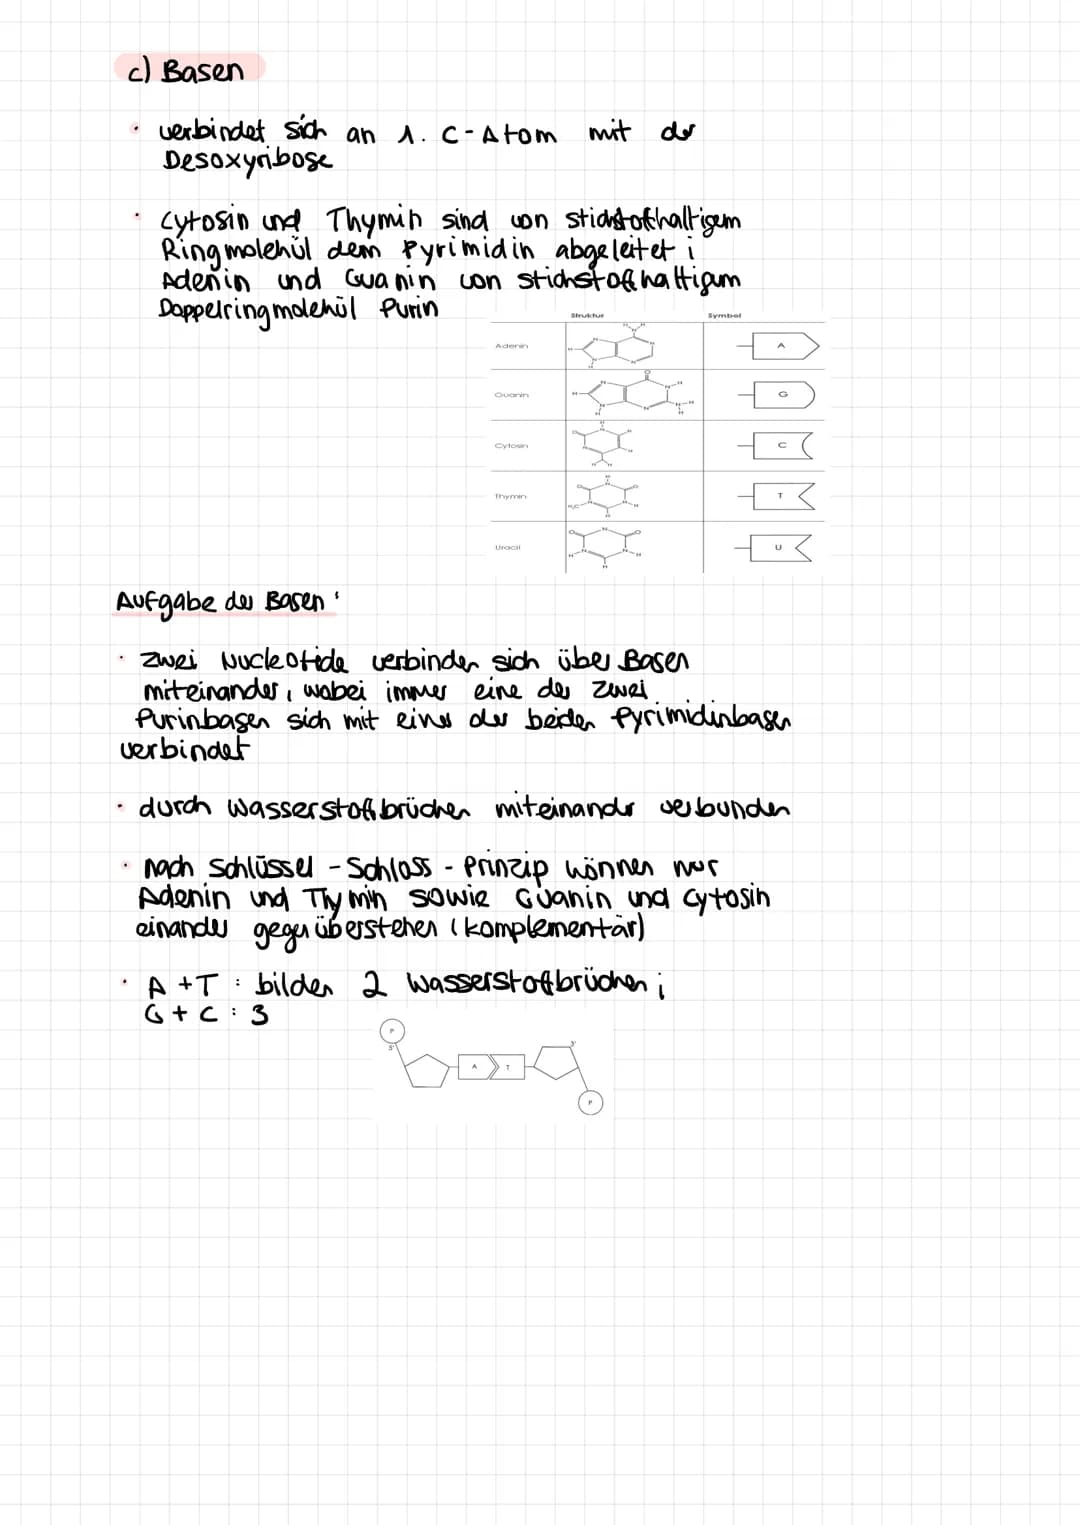 c) Basen
• verbindet sich an 1. C-Atom mit der
Desoxyribose
• Cytosin und Thymin sind von stickstoffhaltigem
Ringmolekül dem Pyrimidin abgeleitet ;
Adenin und Guanin von stickstoffhaltigem
Doppelringmolekül Purin
Struktur Symbol
Adenin A
Guanin G
Cytosin C
Thymin T
Uracil U
Aufgabe der Basen:
• zwei Nucleotide verbinden sich über Basen
miteinander, wobei immer eine der zwei
Purinbasen sich mit einer der beiden Pyrimidinbasen
verbindet
• durch Wasserstoffbrücken miteinander verbunden
• nach Schlüssel-Schloss-Prinzip können nur
Adenin und Thymin sowie Guanin und Cytosin
einander gegenüberstehen (komplementär)
• A+T: bilden 2 Wasserstoffbrücken;
G+C: 3
P
5'
A T
3'
P